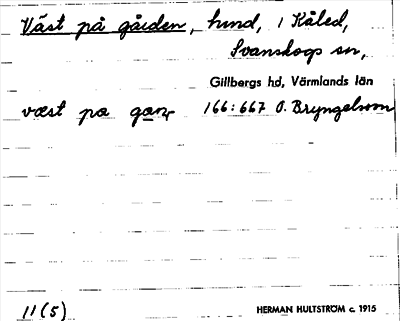 Väst på gården, hund, i Kåled,
Svanskogs sn,
Gillbergs hd, Värmlands län
væst pa gan 166:667 O. Bryngelsson
11(5) HERMAN HULTSTRÖM c. 1915